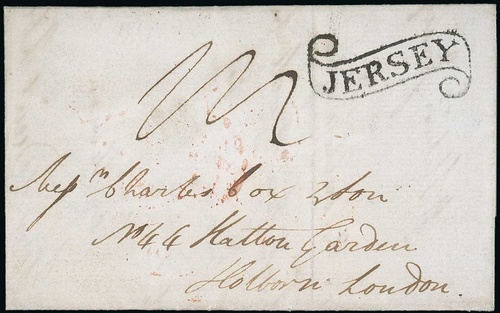 JERSEY
Messrs Charles Cox & Son
No 44 Hatton Garden
Holborn London.